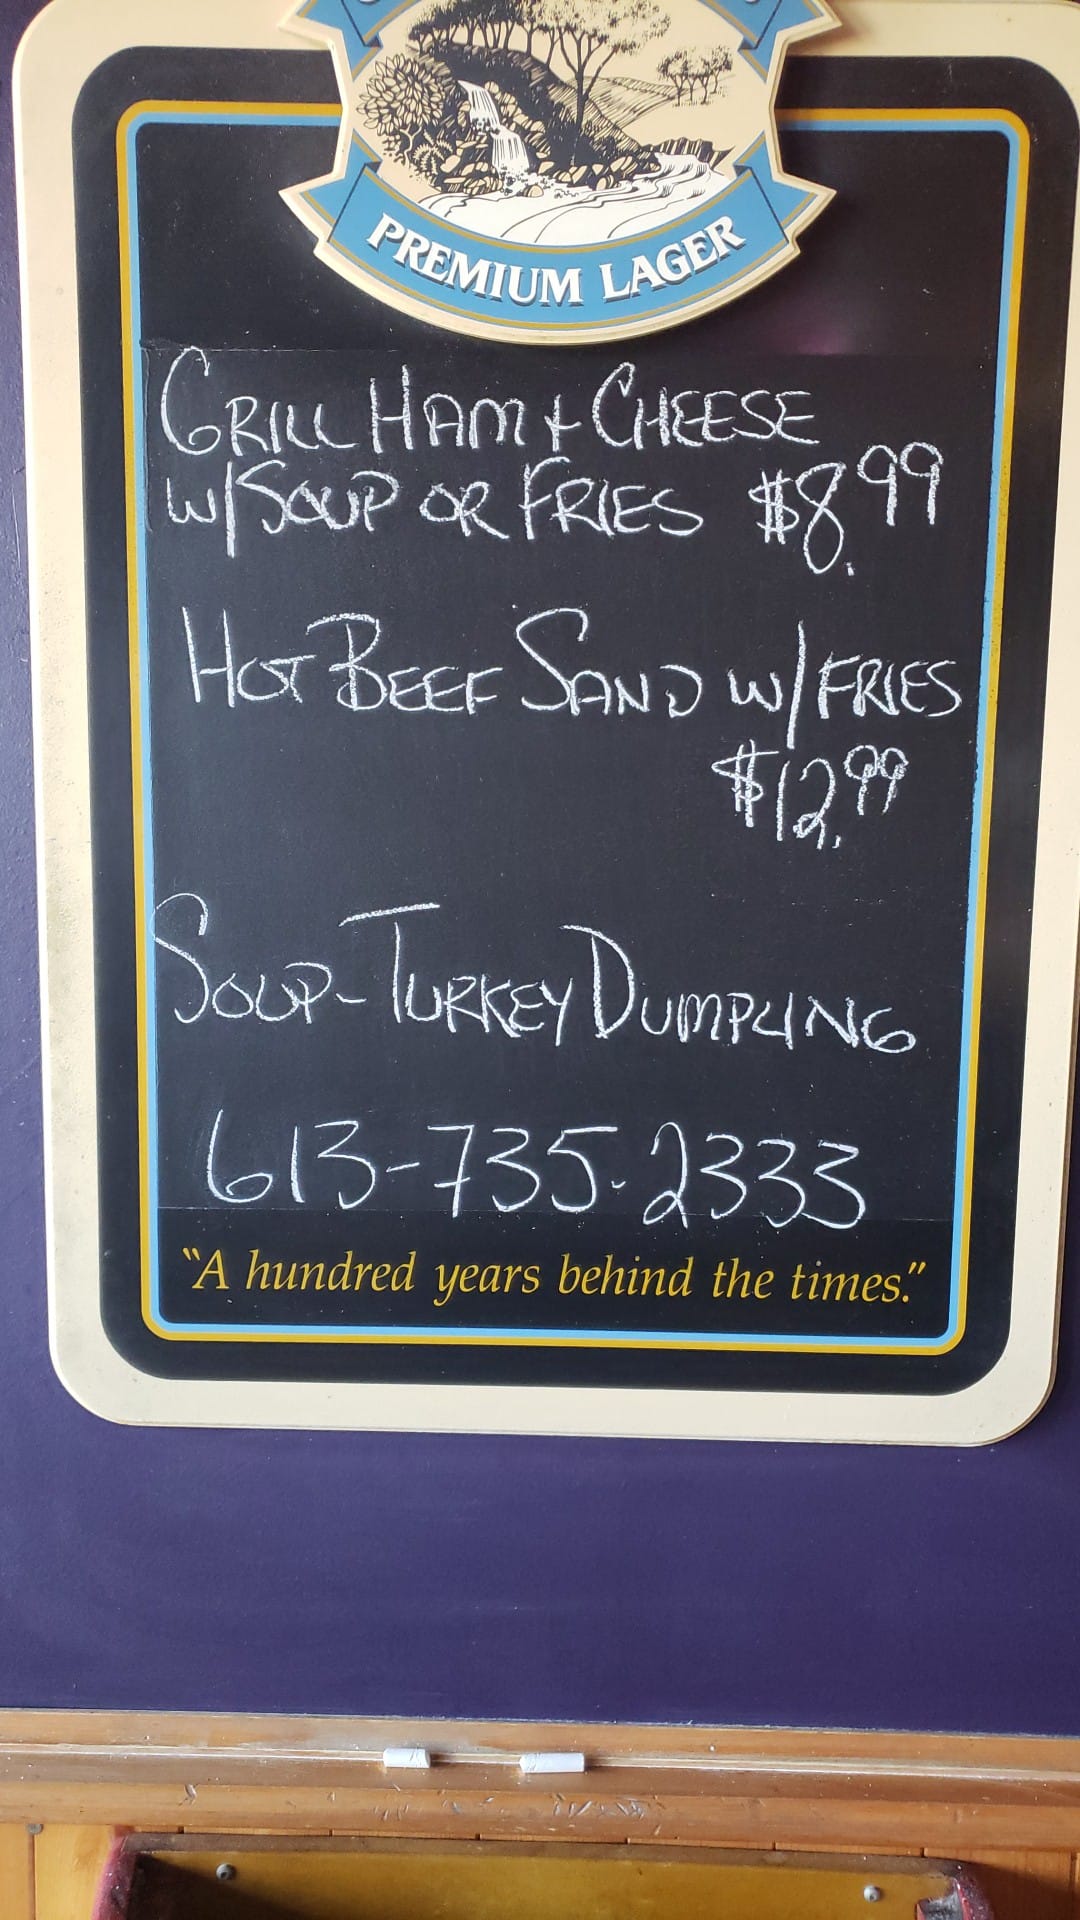 PREMIUM LAGER
GRILL HAM + CHEESE
W/SOUP OR FRIES $8.99
HOT BEEF SAND W/FRIES
$12.99
SOUP-TURKEY DUMPLING
613-735-2333
"A hundred years behind the times."